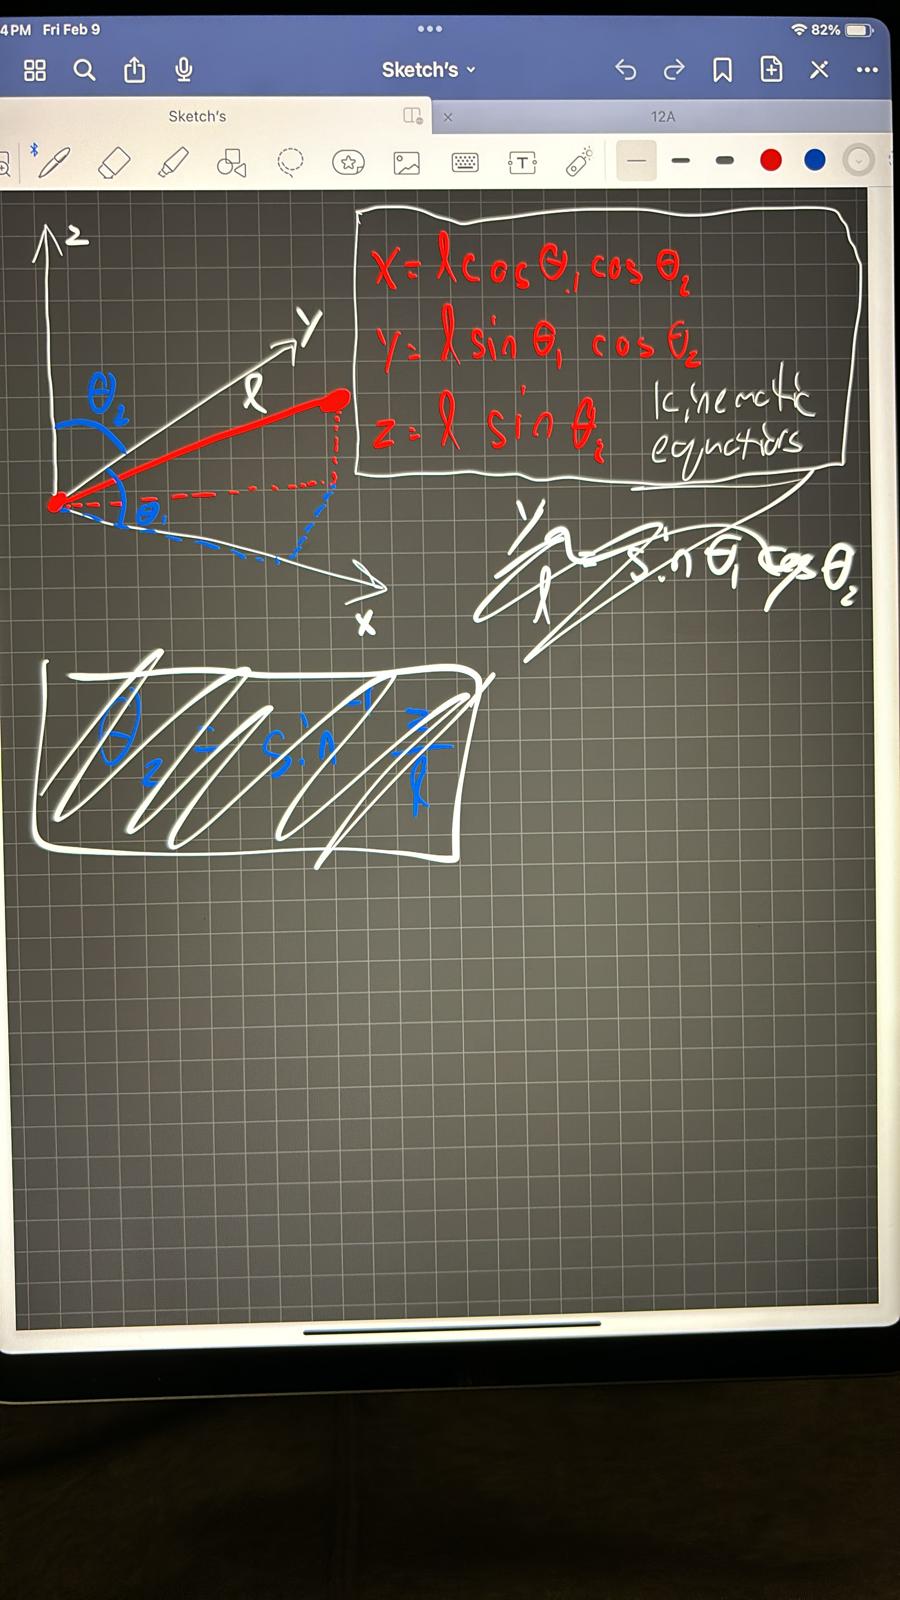 4PM Fri Feb 9
82%
Sketch's
Sketch's
12A
T
z
y
l
θ₂
θ₁
x
x = l cos θ₁ cos θ₂
y = l sin θ₁ cos θ₂
z = l sin θ₂
kinematic
equations
y/l = sin θ₁ cos θ₂
θ₂ = sin⁻¹ z/l